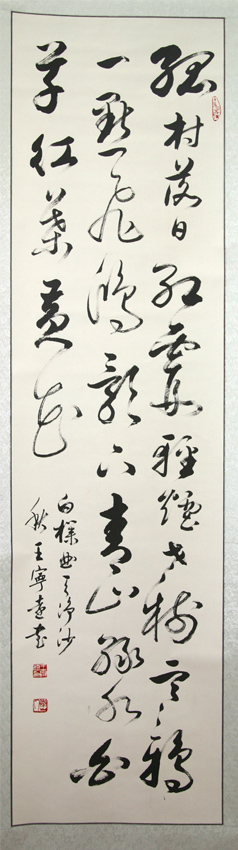 孤村落日残霞轻烟老树寒鸦
一点飞鸿影下青山绿水白
草红叶黄花
白朴曲天净沙
秋王宁书